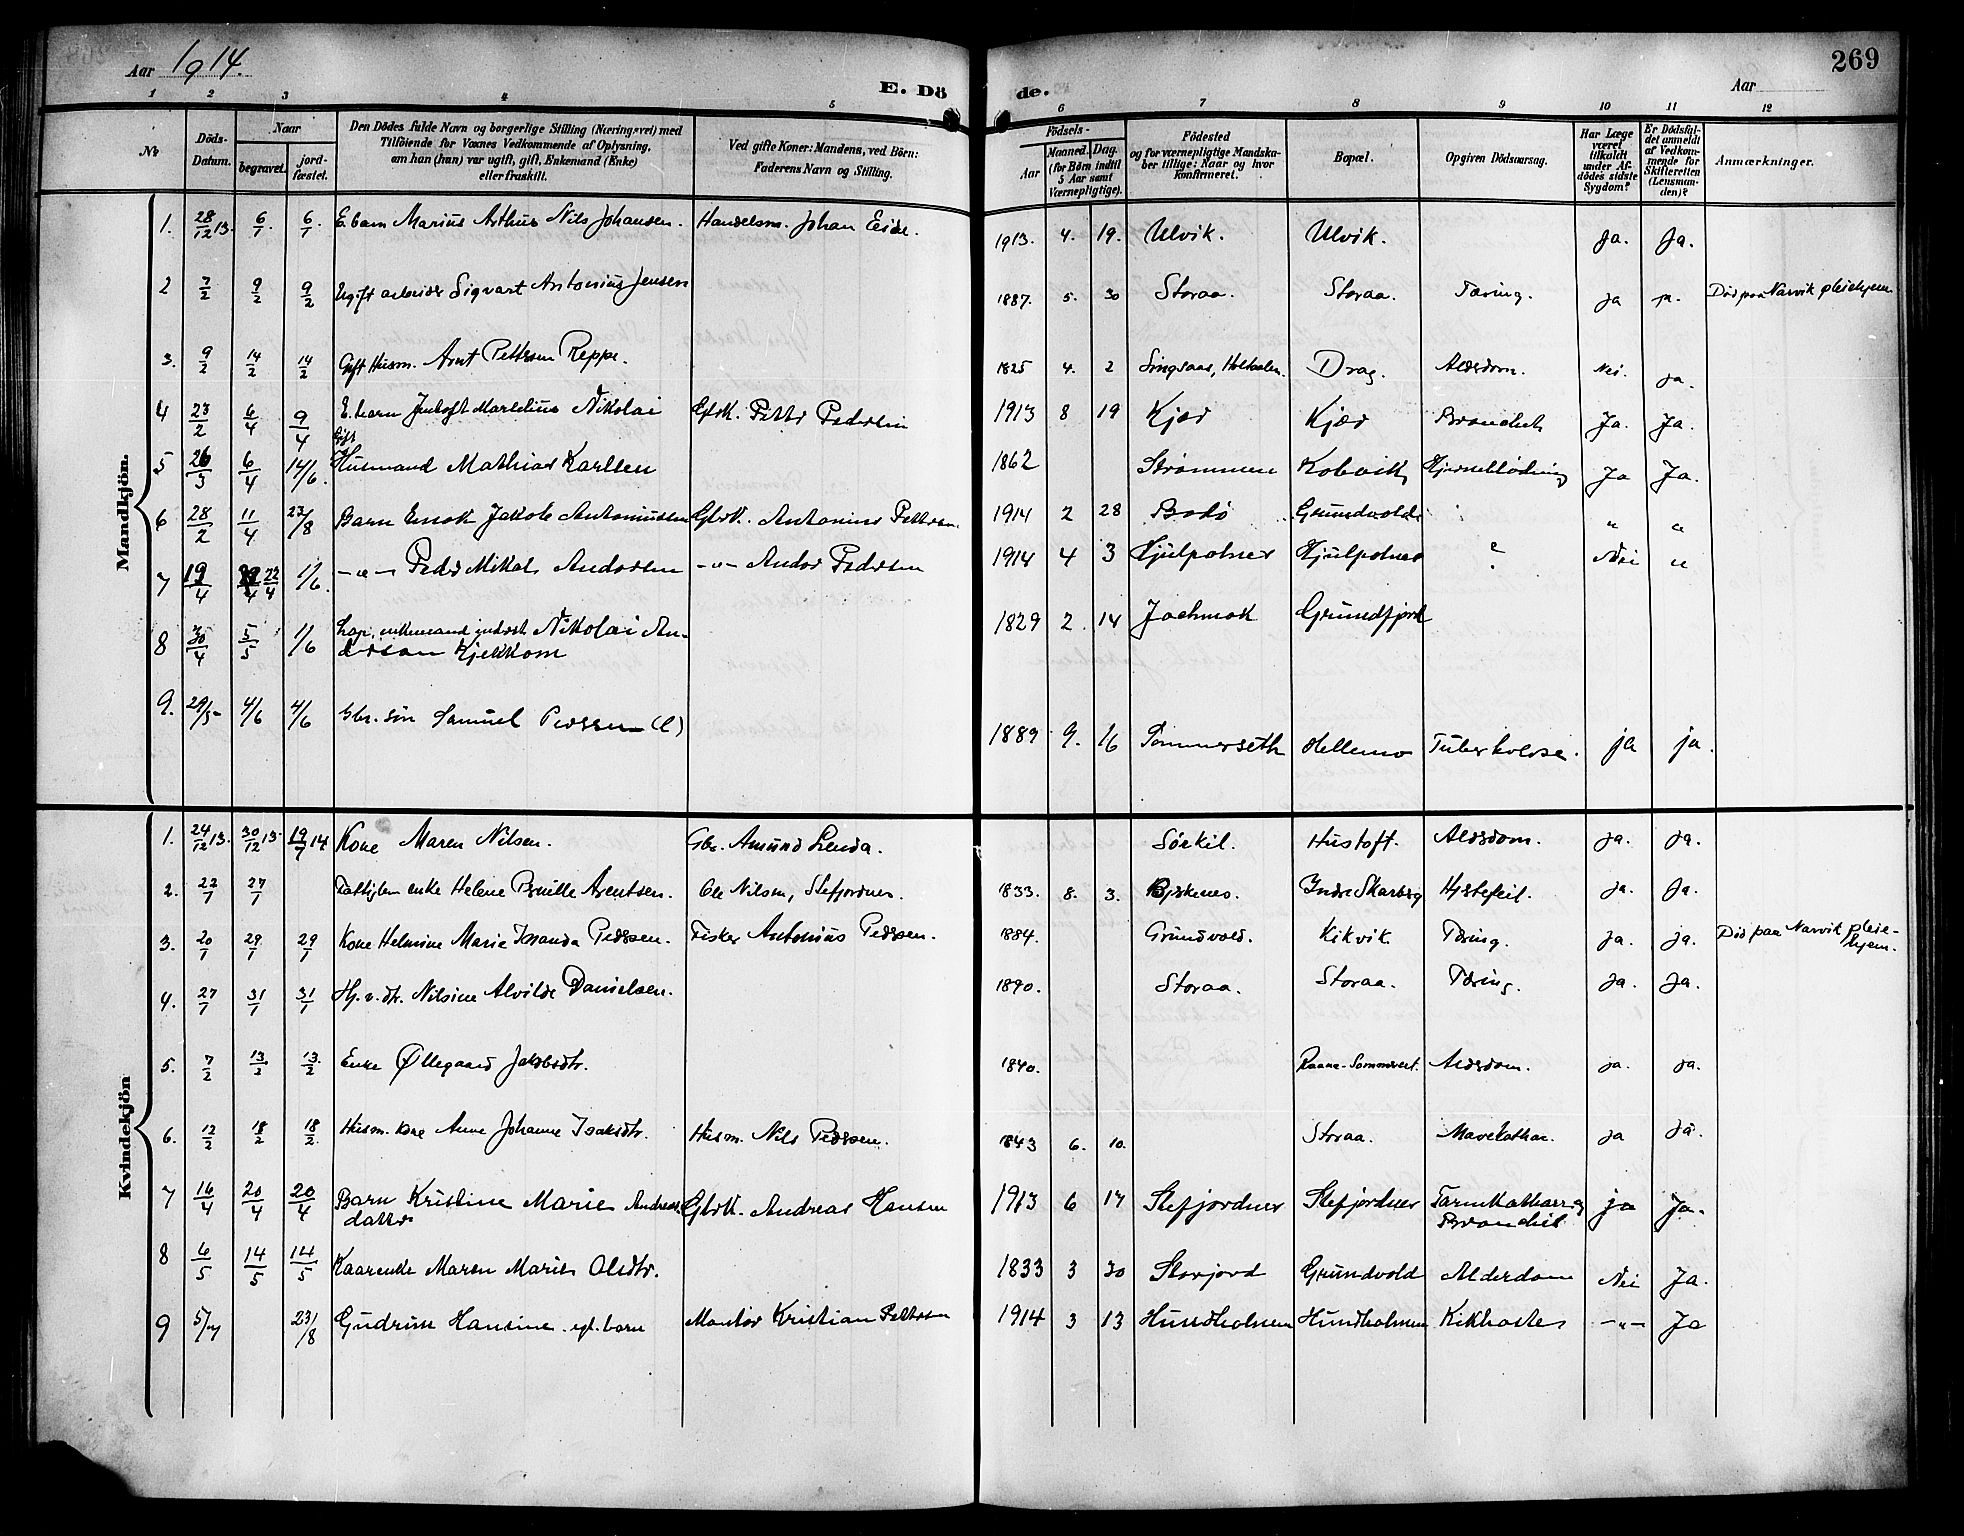 269
Aar 1914.
E. Dö de.
Aar
1 2 3 4 5 6 7 8 9 10 11 12
No
Döds-Datum.
Naar
begravet.
jord-fæstet.
Den Dödes fulde Navn og borgerlige Stilling (Næringsvei) med
Tilföiende for Voxnes Vedkommende af Oplysning,
om han (hun) var ugift, gift, Enkemand (Enke)
eller fraskilt.
Ved gifte Koner: Mandens, ved Börn:
Faderens Navn og Stilling.
Födsels-
Aar
Maaned. Dag.
(for Börn indtil
5 Aar samt
Værnepligtige).
Födested
og for værnepligtige Mandska-
ber tillige: Naar og hvor
konfirmeret.
Bopæl.
Opgiven Dödsaarsag.
Har Læge
været
tilkaldt
under Af-
dödes sidste
Sygdom?
Er Dödsfal-
det anmeldt
af Vedkom-
mende for
Skifteretten
(Lensman-
den)?
Anmærkninger.
Mandkjön.
1. 28/12 13. 6/1. 6/1. E. barn Marius Arthur Nils Johansen. Handelsm. Johan Eide. 1913. 4. 19. Ulvik. Ulvik. Ja. Ja.
2 7/2 9/2 9/2 Ugift arbeider Sigvart Antonius Jensen 1887. 5. 30 Storaa. Storaa. Tæring. ja ja. Död paa Narvik pleiehjem
3. 9/2 14/2 14/2 Gift Husm. Arnt Pettersen Reppe. 1825 4. 2 Singsaas, Holtaalen. Drag. Alderdom. Nei. ja.
4 23/2 6/4 9/4 E. barn Marelius Nikolai Gbrk. Petter Pedersen 1913 8 19 Kjær Kjær Bronchit Ja. Ja.
Gift
5 26/3 6/4 14/6. Husmand Mathias Karlsen 1862 Strømmen Kobvik Hjerneblødning Ja Ja.
6 28/2 11/4 23/8 Barn Enok Jakob Antoniussen Gbrk. Antonius Pettersen 1914 2 28 Bodø Grundvold " "
7 19/4 22/4 1/6. -"- Peder Mikal Andorsen -"- Andor Pedersen 1914 4 3 Hjulpolnes Hjulpolnes ? Nei "
8 30/4 5/5 1/6 Lap, enkemand inderst Nikolai An-
dersen Kjekkom 1829 2. 14 Jockmok Grundfjord
9. 29/5 4/6 4/6 Gbr. søn Samuel Pedersen (l) 1889 9. 16 Sommerseth Hellemo Tuberkulose. ja ja.
Kvindekjön
1. 24/12 13. 30/12 13. 19/7 14 Kone Maren Nilsen. Gbr. Amund Lenda. Sörkil. Hustoft. Alderdom. ja. ja.
2. 22/1 27/1 Fattiglem enke Helene Pernille Arentsen. Ole Nilsen, Stefjordnes. 1833. 8. 3. Bjerkenes. Indre Skarberg Hjertefeil. ja. ja.
3. 20/1 29/1 29/1 Kone Helmine Marie Pedersen. Fisker Antonius Pedersen. 1884. Grundvold. Kikvik. Tæring. ja. ja. Död paa Narvik pleie-
hjem.
4. 27/1 31/1 31/1 Hj. v. dtr. Nilsine Alvilde Danielsen. 1890. Storaa. Storaa. Tæring. ja. ja.
5. 7/2 13/2 13/2 Enke Øllegaard Jakobsdtr. 1840. Alderdom. ja. ja.
6. 12/2 18/2 18/2. Husm. kone Anne Johanne Isaksdtr. Husm. Nils Pedersen. 1843 6. 10. Storaa. Mavekathar. ja ja.
7 16/4 20/4 20/4 Barn Kristine Marie Andreas-
datter Gbrk. Andreas Hansen 1913 6 17 Stefjordnes Stefjordnes Tarmkathar og
Bronchit ja Ja.
8 6/5 14/5 14/5 Kaarenke Maren Marie Olsdtr. 1833 3 30 Storjord Grundvold Alderdom Nei Ja.
9 5/7 23/8 Gudrun Hansine egt. barn Montør Kristian Pettersen 1914 3 13 Hundholmen Hundholmen Kikhoste -"- Ja